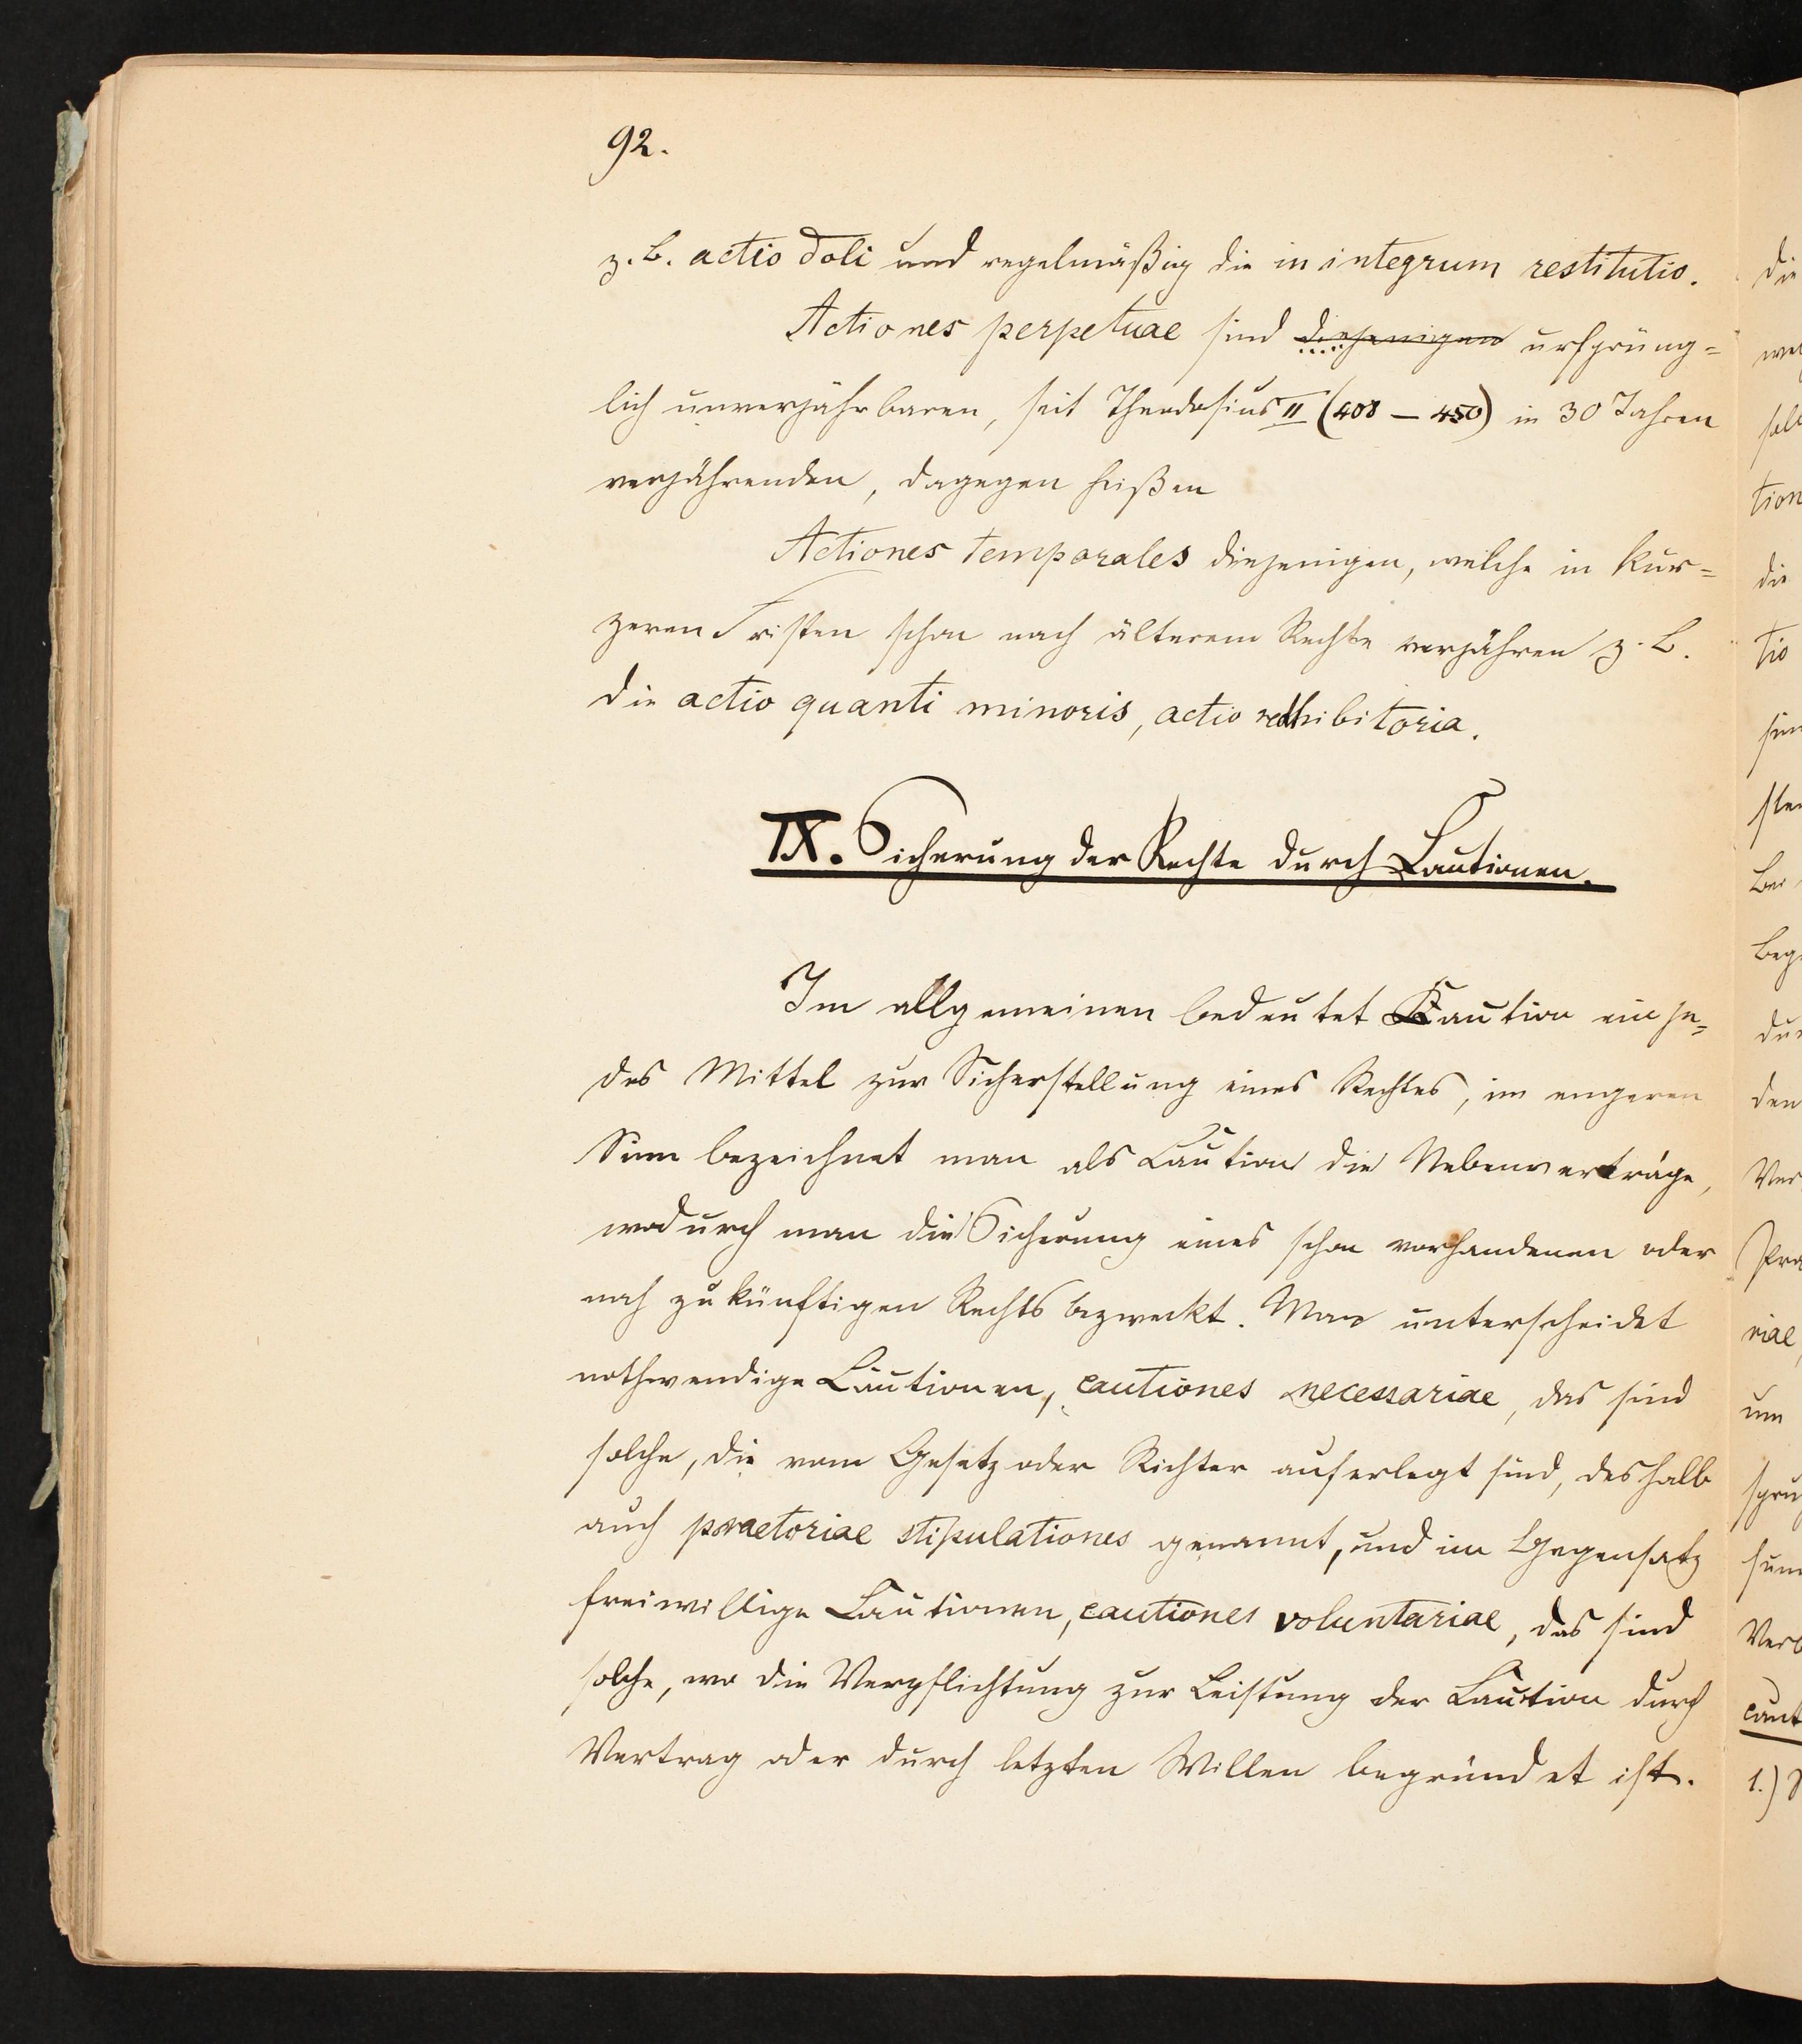 92.
z. B. actio doli und regelmäßig die in integrum restitutio.
Actiones perpetuae sind diejenigen ursprüng=
lich unverjährbaren, seit Theodosius II (408 – 450) in 30 Jahren
verjährenden, dagegen heißen
Actiones temporales diejenigen, welche in kür=
zeren Fristen schon nach älterem Rechte verjähren z. B.
die actio quanti minoris, actio redhibitoria.
IX. Sicherung der Rechte durch Cautionen.
Im allgemeinen bedeutet Kaution ein je=
des Mittel zur Sicherstellung eines Rechtes, im engeren
Sinn bezeichnet man als Caution die Nebenverträge,
wodurch man die Sicherung eines schon vorhandenen oder
noch zukünftigen Rechts bezweckt. Man unterscheidet
nothwendige Cautionen, cautiones necessariae, das sind
solche, die vom Gesetz oder Richter auferlegt sind, deshalb
auch praetoriae stipulationes genannt, und im Gegensatz
freiwillige Cautionen, cautiones voluntariae, das sind
solche, wo die Verpflichtung zur Leistung der Caution durch
Vertrag oder durch letzten Willen begründet ist.